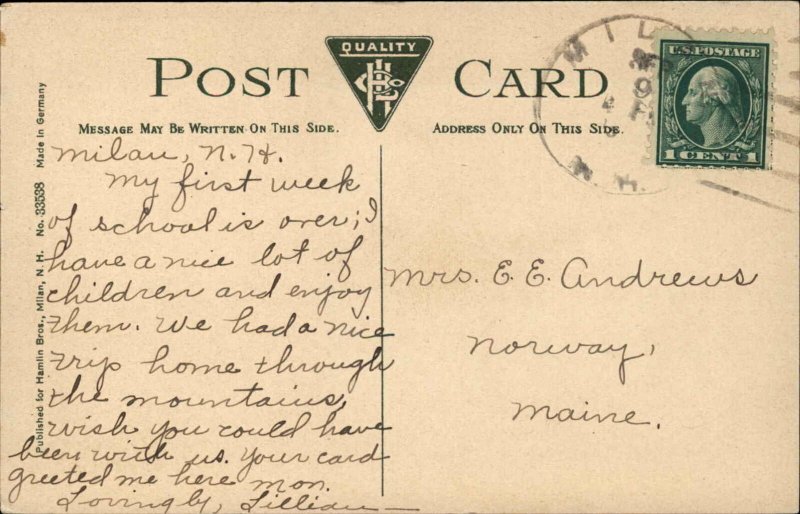 QUALITY
POST CARD
MESSAGE MAY BE WRITTEN ON THIS SIDE.
ADDRESS ONLY ON THIS SIDE.
Published for Hamlin Bros., Milan, N. H. No. 33538 Made in Germany
Milan, N.H.
My first week
of school is over; I
have a nice lot of
children and enjoy
them. We had a nice
trip home through
the mountains,
wish you could have
been with us. Your card
greeted me here mon.
Lovingly, Lillian
Mrs. E. E. Andrews
Norway,
Maine.
MIL
N.H.
U.S. POSTAGE
1 CENT 1